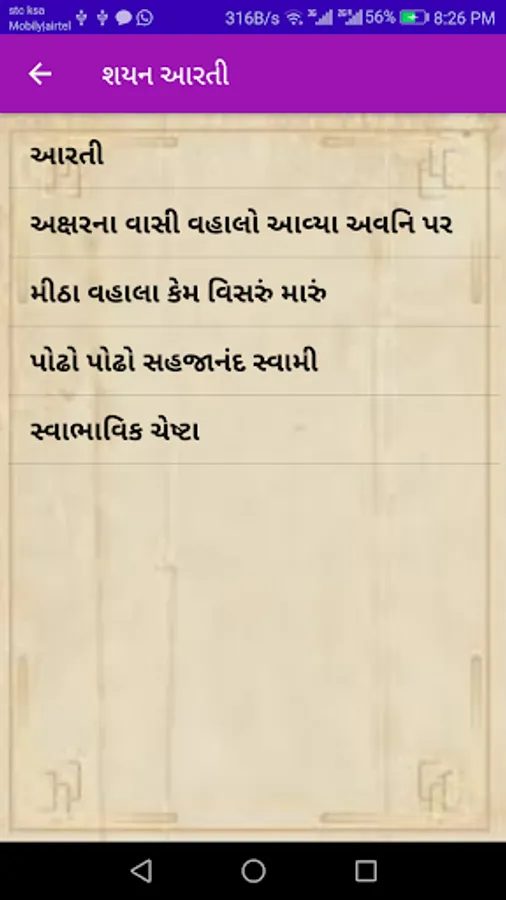 stc ksa
Mobily|airtel 316B/s 3G 2G 56% 8:26 PM
શયન આરતી
આરતી
અક્ષરના વાસી વહાલો આવ્યા અવનિ પર
મીઠા વહાલા કેમ વિસરું મારું
પોઢો પોઢો સહજાનંદ સ્વામી
સ્વાભાવિક ચેષ્ટા